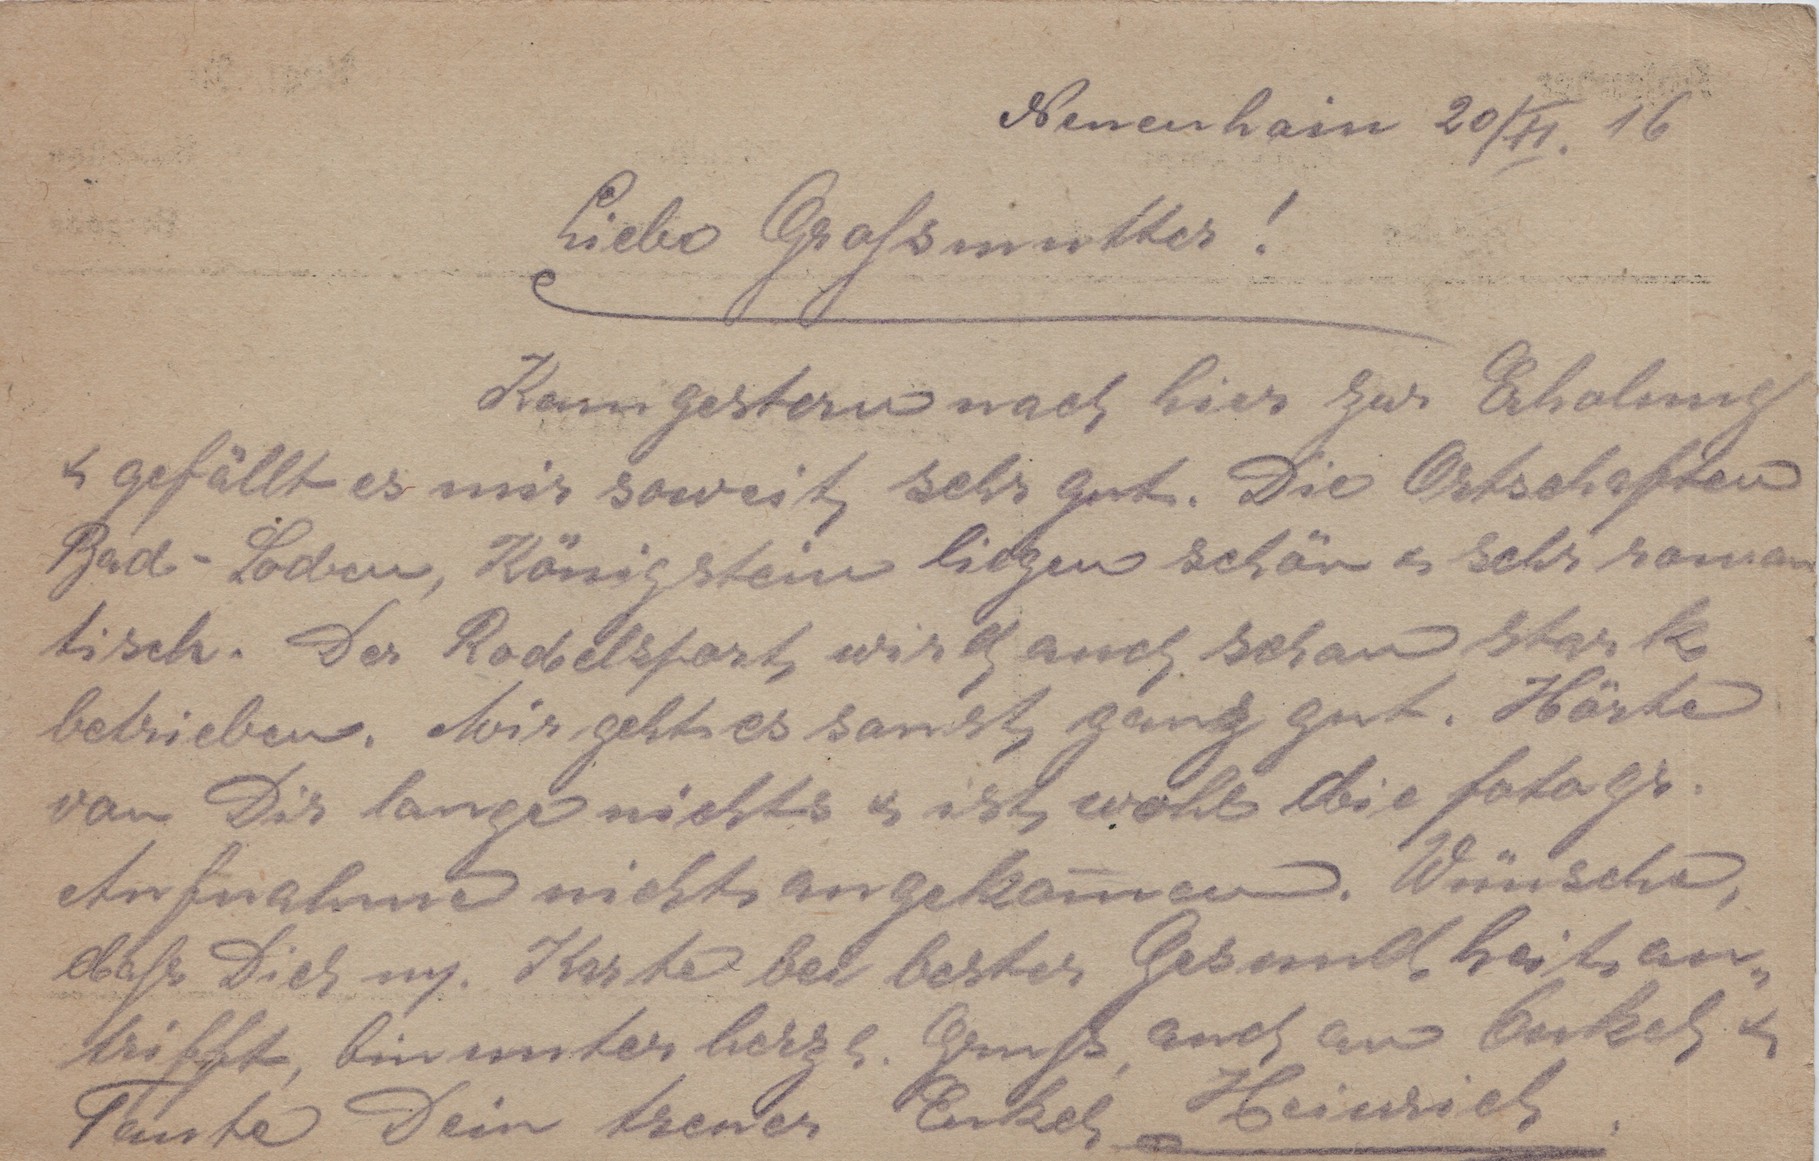 Neuenhain 20/XII. 16
Liebe Großmutter!
Kam gestern nach hier zur Erholung
u gefällt es mir soweit sehr gut. Die Ortschaften
Bad-Soden, Königstein liegen schön u sehr roman
tisch. Der Rodelsport wird auch schon stark
betrieben. Mir geht es sonst ganz gut. Hörte
von Dir lange nichts u ist wohl die fotogr.
Aufnahme nicht angekom̄en. Wünsche,
daß Dich m. Karte bei bester Gesundheit an„
trifft, bin unter herzl. Gruß, auch an Onkel u
Tante Dein treuer Enkel Heinrich.